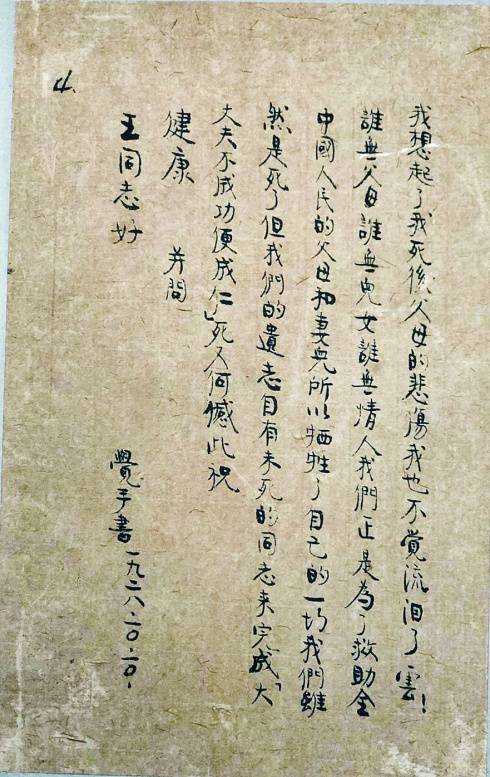 我想起了我死後父母的悲傷我也不覺流泪了雲!
誰無父母誰無兒女誰無情人我們正是為了救助全
中國人民的父母和妻兒所以牺牲了自己的一切我們雖
然是死了但我們的遺志自有未死的同志来完成「大
丈夫不成功便成仁」死又何憾此祝
健康 并問
王同志好
覺手書一九二八.一〇.一〇.
4.